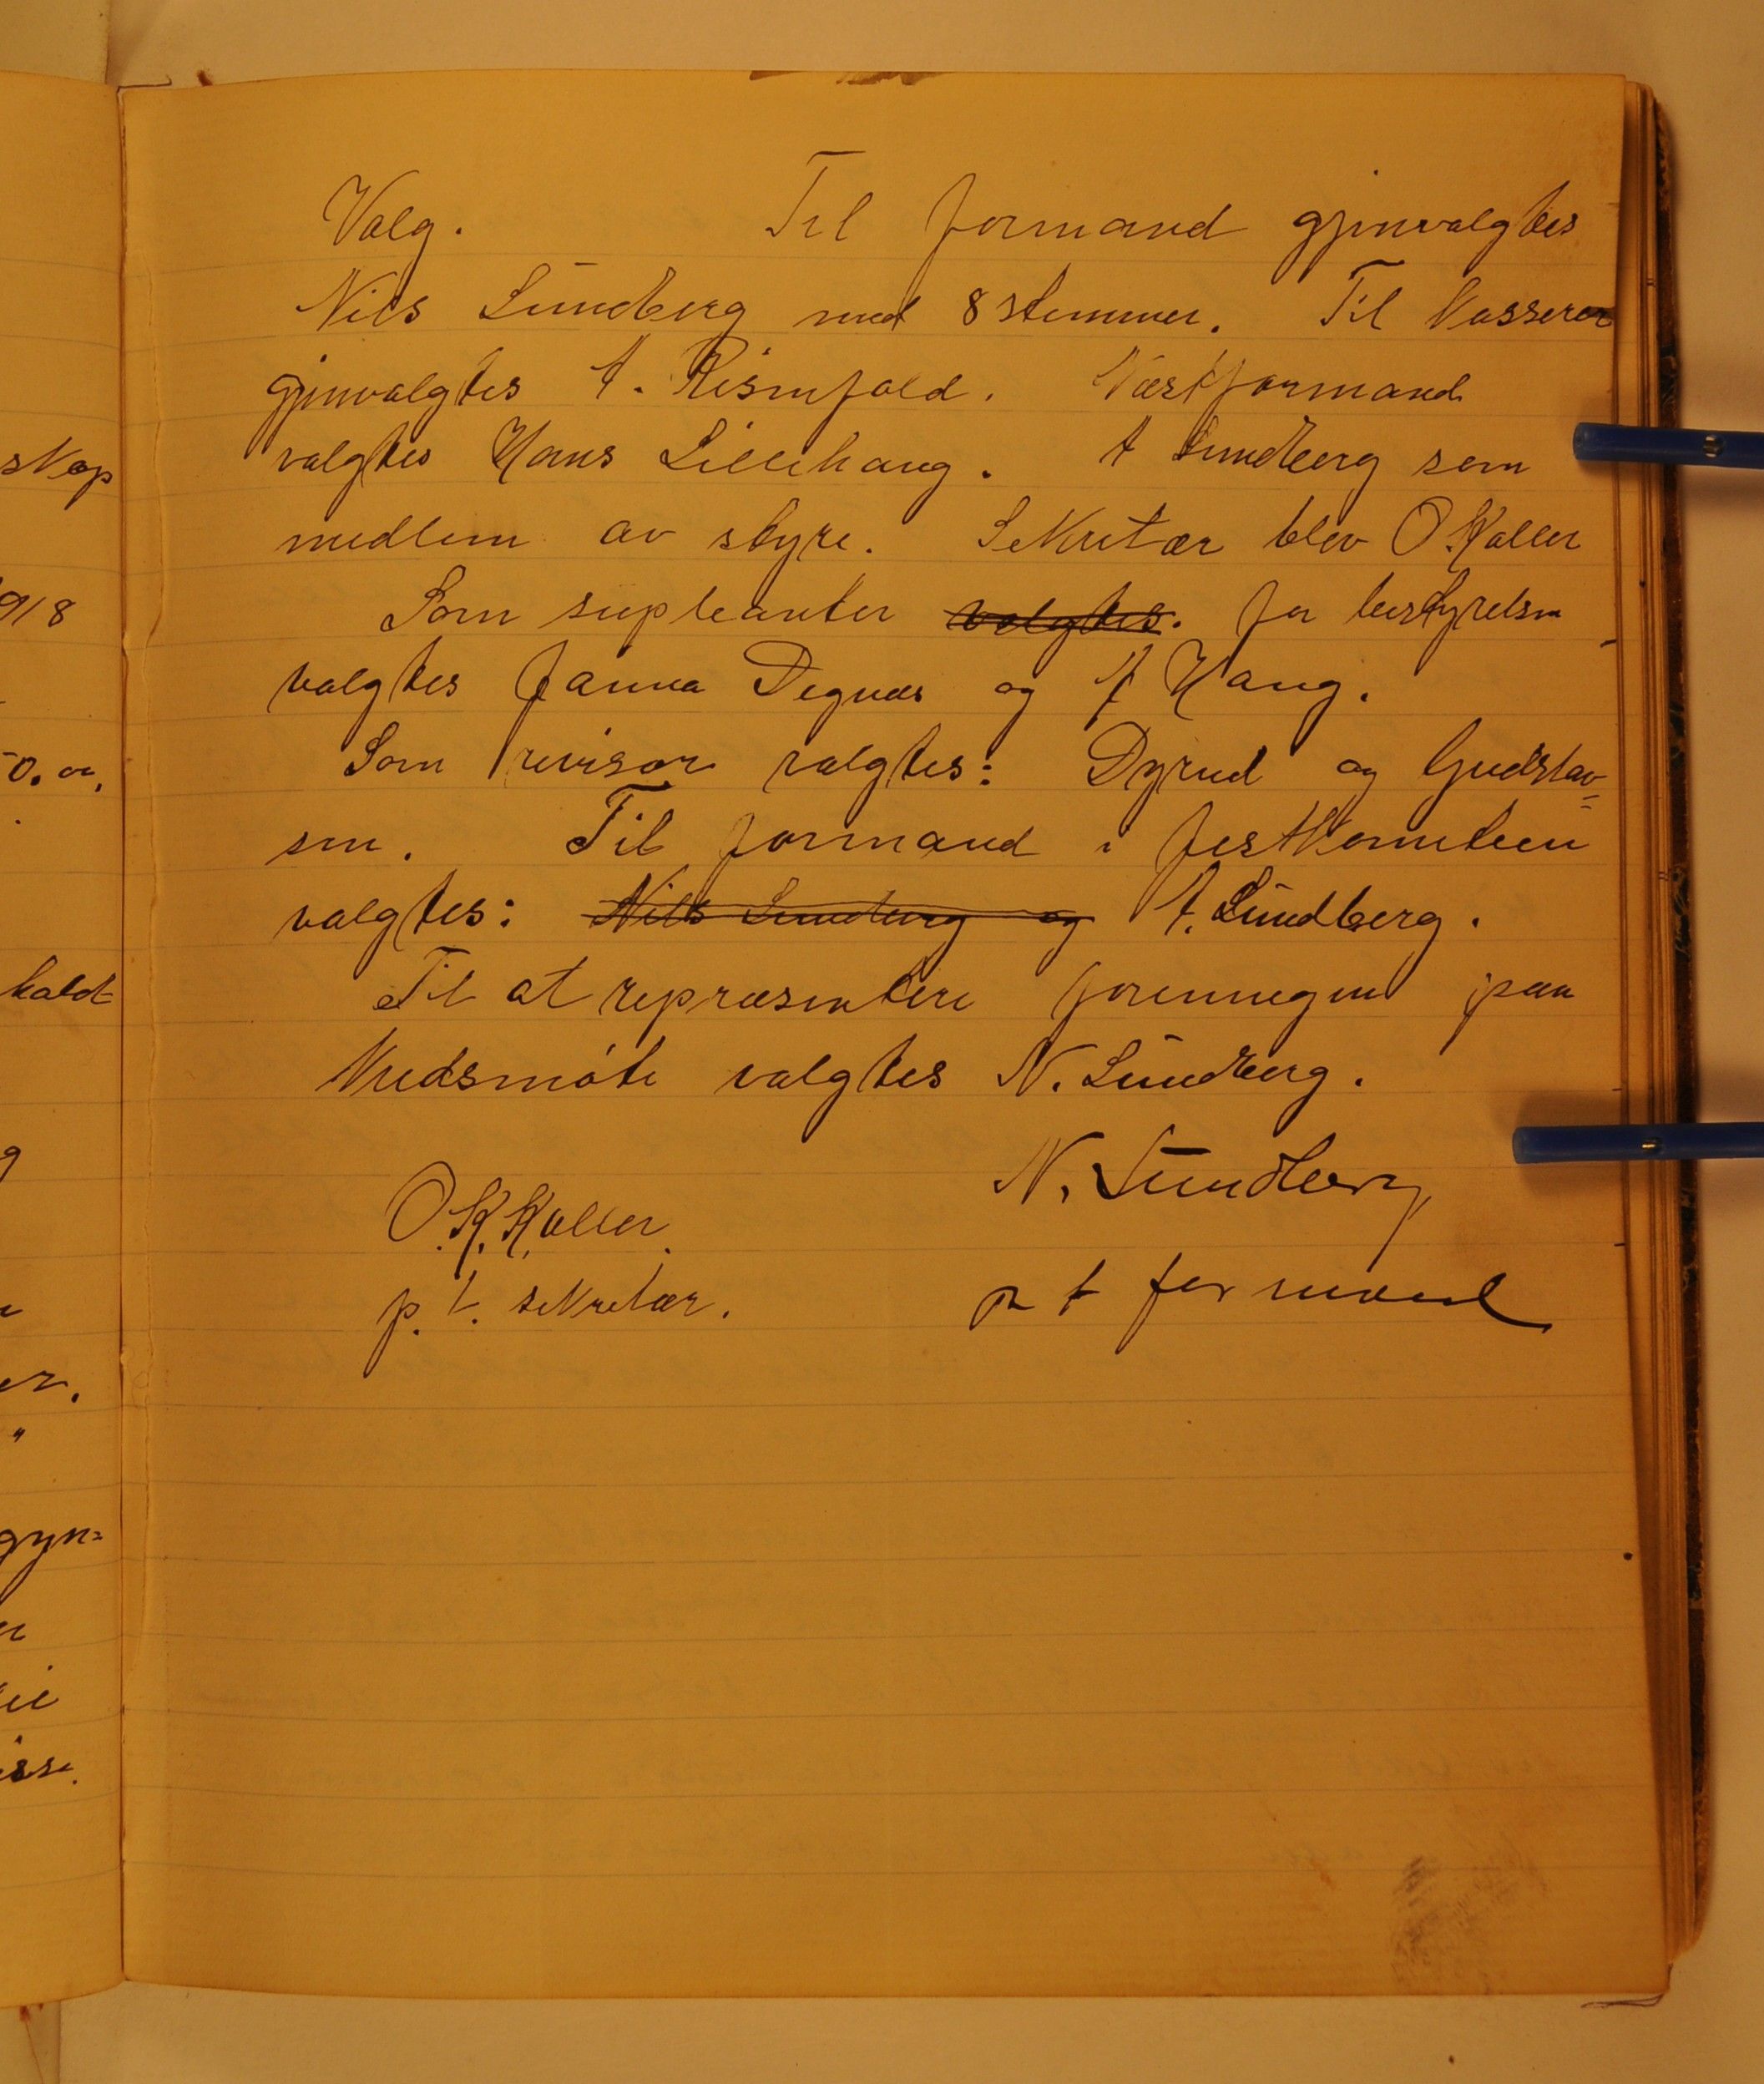 skap
918
0.00.
holdt
g
er.
"
gyn=
il
isse.
Valg. Til formand gjenvalgtes
Nils Lundberg med 8 stemmer. Til kasserer
gjenvalgtes A. Reisenfold. Næstformand
valgtes Hans Lillehaug. A Lundberg som
medlem av styre. Sekretær blev O Kaller
Som supleanter valgtes. for bestyrelsen
valgtes Janna Degnæs og A Haug.
Som revisor valgtes: Dyrud og Gudstav=
sen. Til formand i festkomiteen
valgtes: Nils Lundberg og A. Lundberg.
Til at repræsentere foreningen paa
kredsmøte valgtes N. Lundberg.
N. Lundberg
O.K. Kaller.
p.t. sekretær.
p t formand